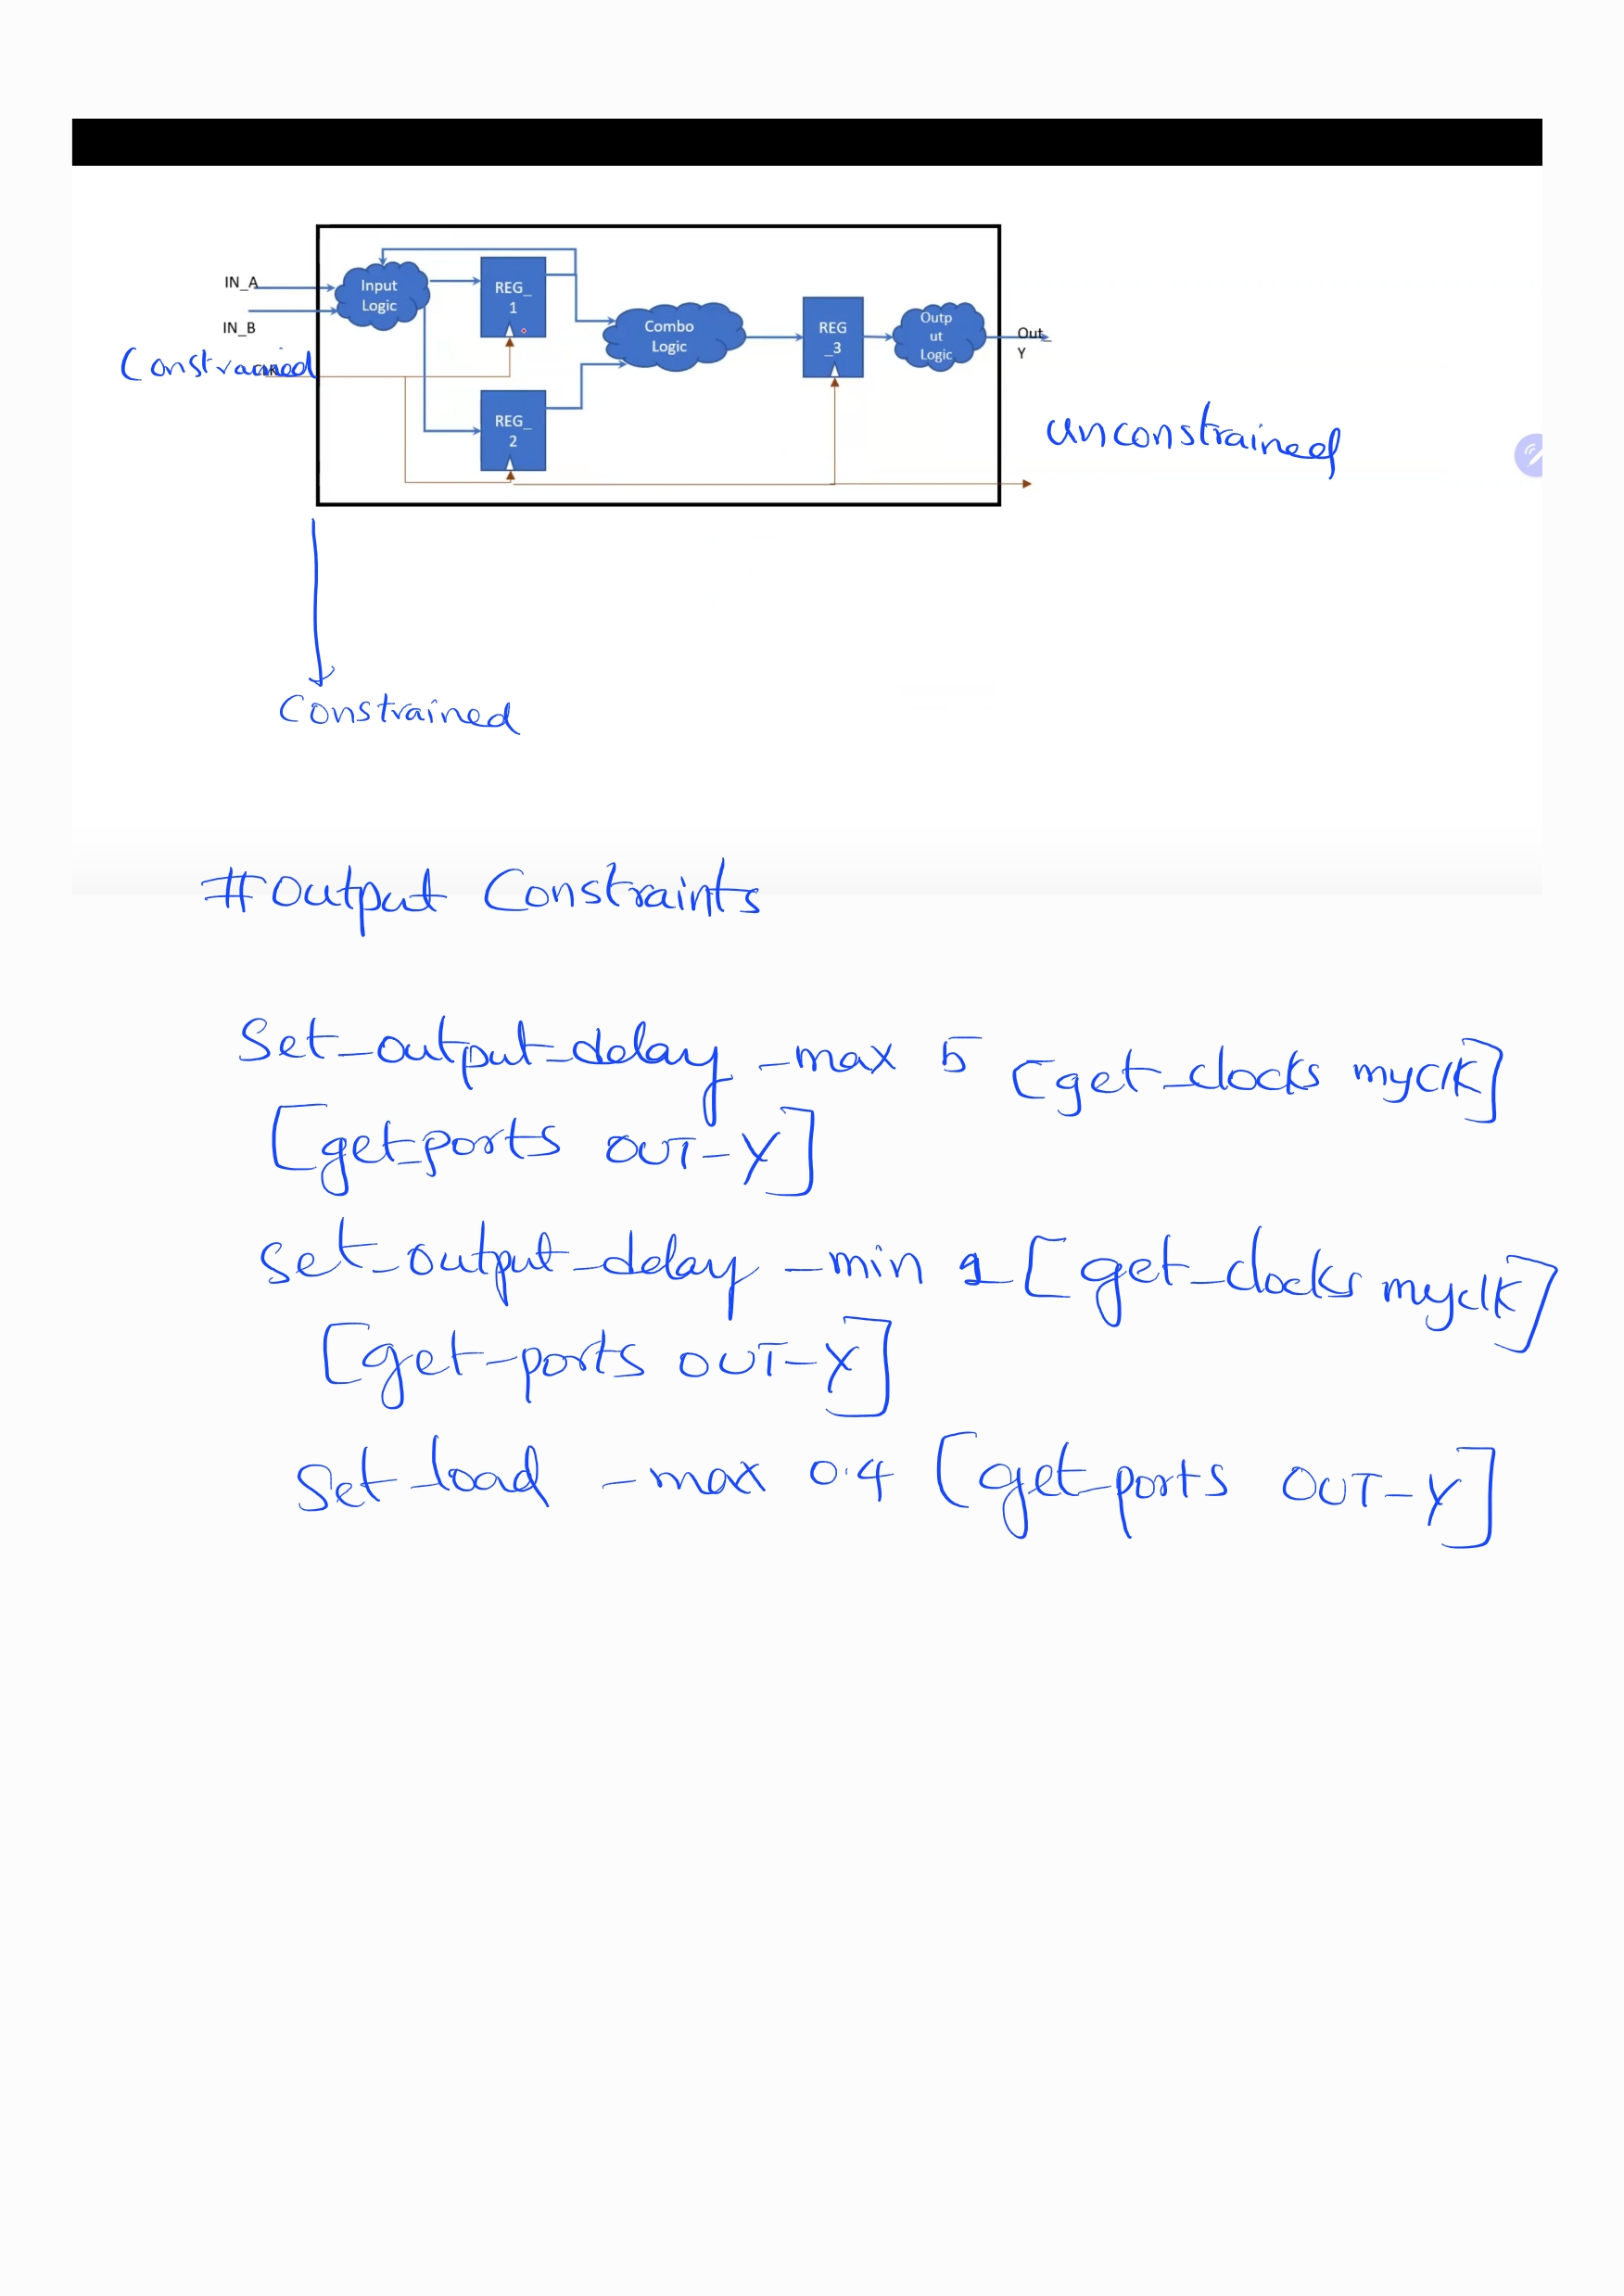 IN_A
Input
Logic
REG_
1
IN_B
Constrained
Combo
Logic
REG
_3
Outp
ut
Logic
Out_
Y
REG_
2
unconstrained
Constrained
#Output Constraints
Set_output_delay -max 5 [get_clocks myclk]
[get_ports OUT_Y]
set_output_delay -min 1 [get_clocks myclk]
[get-ports OUT-Y]
set_load -max 0.4 [get_ports OUT-Y]